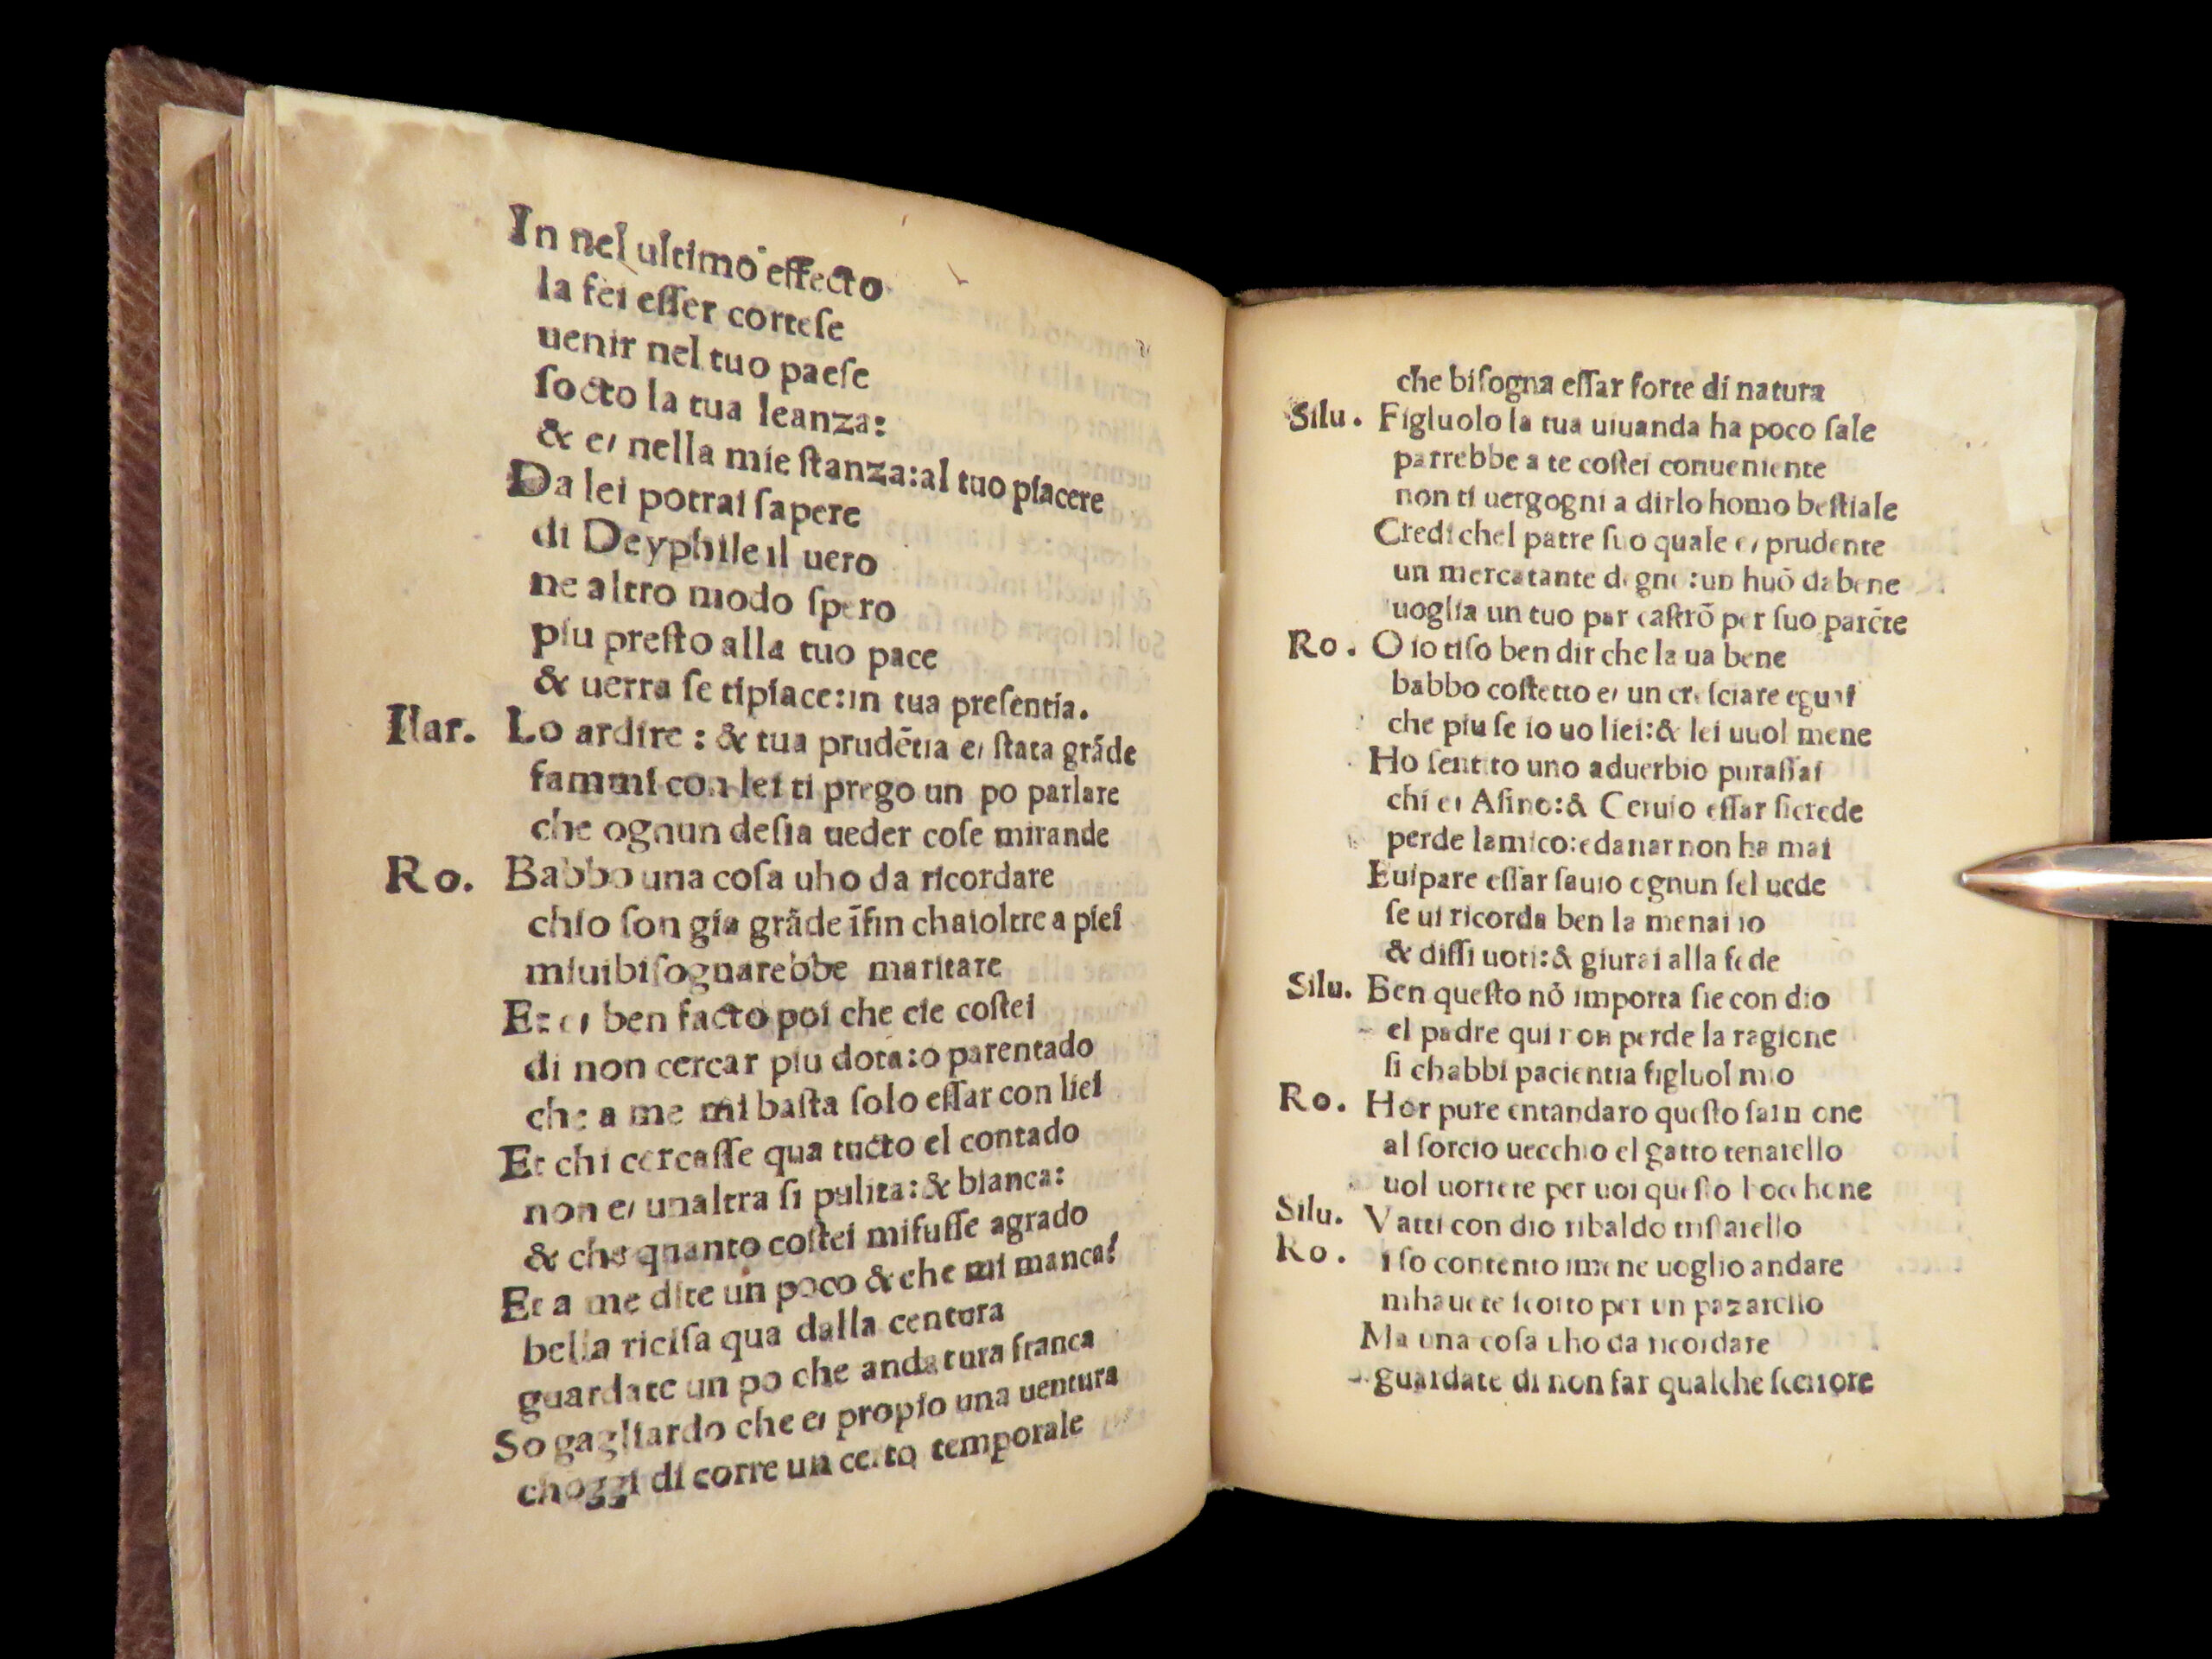 In nel ultimo effecto
la fei eſſer corteſe
uenir nel tuo paeſe
ſocto la tua leanza:
& e, nella mie ſtanza:al tuo piacere
Da lei potrai ſapere
di Deyphile il uero
ne altro modo ſpero
piu preſto alla tuo pace
& uerra ſe tipiace:in tua preſentia.
Ilar. Lo ardire : & tua prudētia e, ſtata grāde
fammi con lei ti prego un po parlare
che ognun deſia ueder coſe mirande
Ro. Babbo una coſa uho da ricordare
chio ſon gia grāde īfin chaioltre a piei
miuibiſognarebbe maritare
Et e, ben facto poi che cie coſtei
di non cercar piu dota:o parentado
che a me mi baſta ſolo eſſar con liei
Et chi cercaſſe qua tucto el contado
non e, unaltra ſi pulita:& bianca:
& che quanto coſtei mifuſſe agrado
Et a me dite un poco & che mi manca?
bella riciſa qua dalla centura
guardate un po che andatura franca
So gagliardo che e, propio una uentura
choggi di corre un certo temporale
che biſogna eſſar forte di natura
Silu. Figluolo la tua uiuanda ha poco ſale
parrebbe a te coſtei conueniente
non ti uergogni a dirlo homo beſtiale
Credi chel patre ſuo quale e, prudente
un mercatante degno:un huō dabene
uoglia un tuo par caſtrō per ſuo parēte
Ro. O io tiſo ben dir che la ua bene
babbo coſtetto e, un creſciare eguai
che piu ſe io uo liei:& lei uuol mene
Ho ſentito uno aduerbio puraſſai
chi e, Aſino:& Ceruio eſſar ſicrede
perde lamico:edanar non ha mai
Euipare eſſar ſauio ognun ſel uede
ſe ui ricorda ben la menai io
& diſſi uoti:& giurai alla fede
Silu. Ben queſto nō importa ſie con dio
el padre qui non perde la ragione
ſi chabbi pacientia figluol mio
Ro. Hor pure entandaro queſto one
al ſorcio uecchio el gatto tenarello
uol uorrete per uoi queſto boc chone
Silu. Vatti con dio ribaldo triſtarello
Ro. i ſo contento imene uoglio andare
mhauete ſcorto per un pazarello
Ma una coſa uho da ricordare
guardate di non far qualche ſcerrore